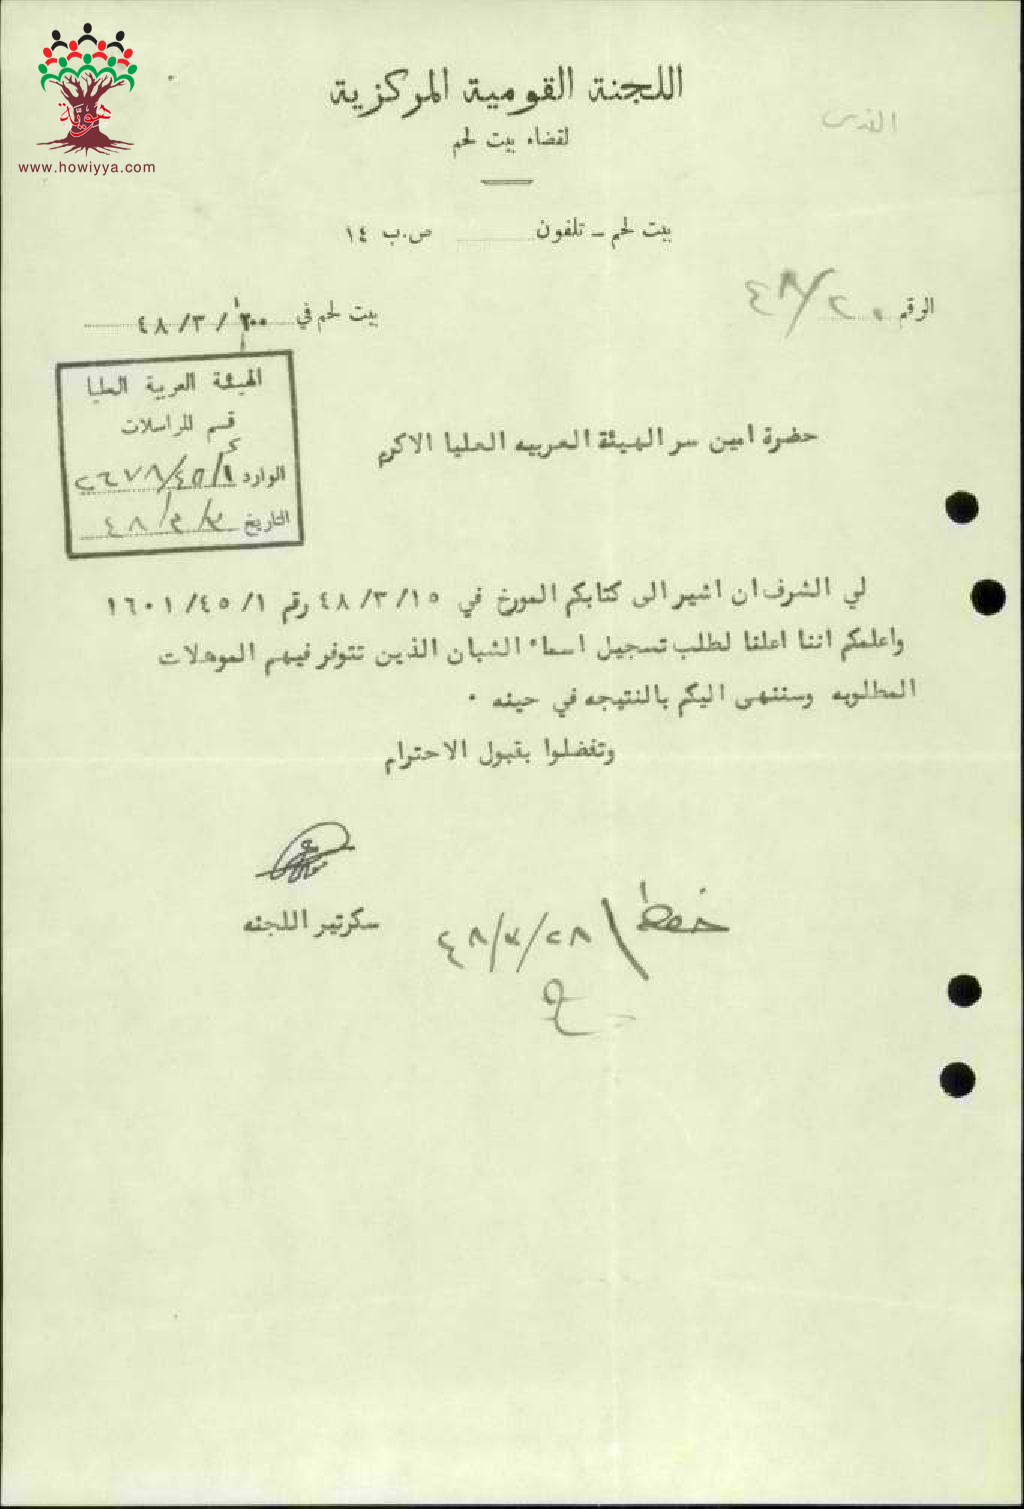 هوية
www.howiyya.com
اللجنة القومية المركزية
لقضاء بيت لحم
القدس
بيت لحم – تلفون ص.ب ١٤
الرقم ٢٠/٤٨
بيت لحم في ٢٠/٣/٤٨
الهيئة العربية العليا
قسم المراسلات
الوارد ٢٦٧٨/٤٥/١
التاريخ ٤٨/٣/
حضرة امين سر الهيئة العربيه العليا الاكرم
لي الشرف ان اشير الى كتابكم المورخ في ٤٨/٣/١٥ رقم ١٦٠١/٤٥/١
واعلمكم اننا اعلنا لطلب تسجيل اسماء الشبان الذين تتوفر فيهم الموهلات
المطلوبه وسننهى اليكم بالنتيجه في حينه ٠
وتفضلوا بقبول الاحترام
سكرتير اللجنه
حفظ
٤٨/٣/٢٨